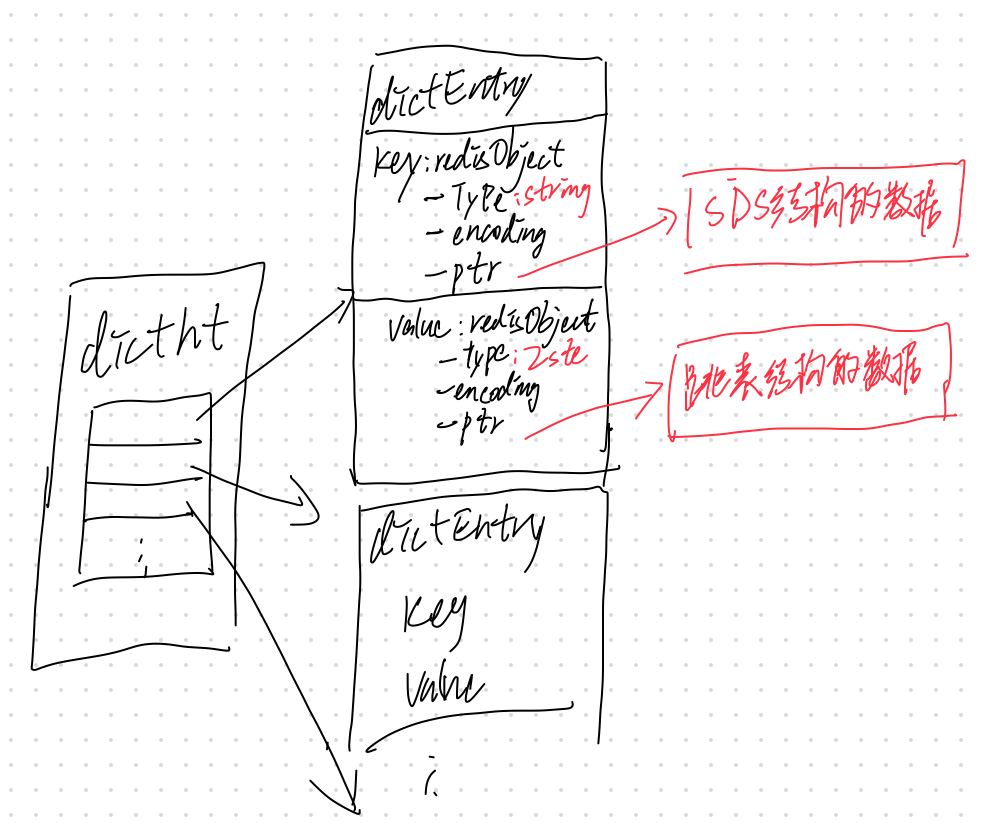 dictht
dictEntry
key:redisObject
- Type:string
- encoding
- ptr
SDS结构的数据
value:redisObject
- type:Zste
- encoding
- ptr
跳表结构的数据
dictEntry
key
value